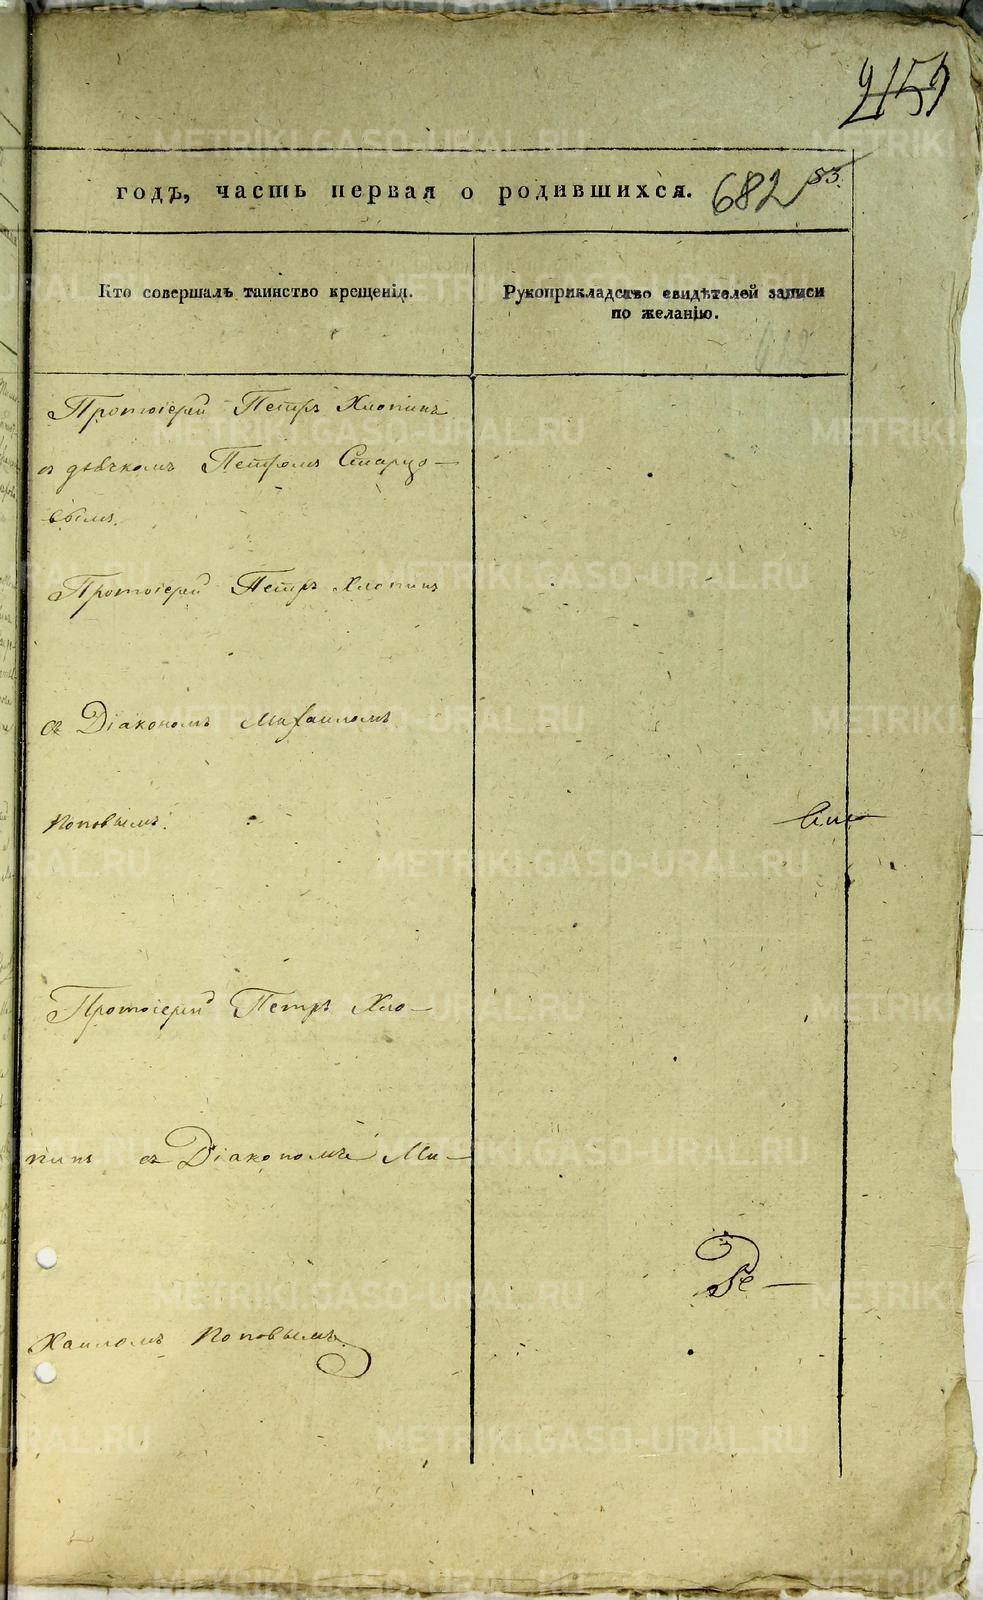 годъ, часть первая о родившихся. 682 83.
Кто совершалъ таинство крещенія.
Рукоприкладство свидѣтелей записи
по желанію.
Протоіерей Петръ Хлопинъ
съ дьячкомъ Петромъ Старцо-
вымъ.
Протоіерей Петръ Хлопинъ
съ Діакономъ Михаиломъ
Поповымъ.
Протоіерей Петръ Хло-
пинъ съ Діакономъ Ми-
хаиломъ Поповымъ
METRIKI.GASO-URAL.RU